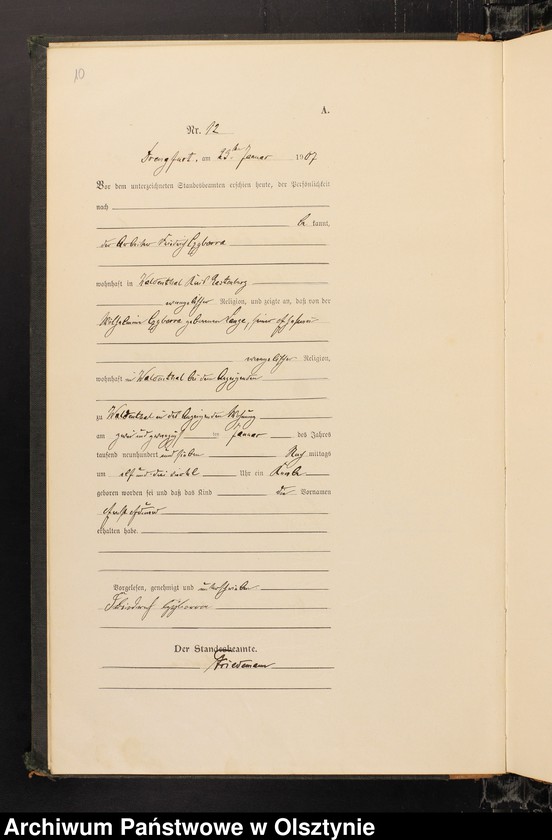 10
A.
Nr. 12
Drengfurt, am 23ten Januar 1907
Vor dem unterzeichneten Standesbeamten erschien heute, der Persönlichkeit
nach
be kannt,
der Arbeiter Friedrich
wohnhaft in Waldenthal Kreis Rastenburg
evangelischer Religion, und zeigte an, daß von der
Wilhelmine geborenen Lange, seiner Ehefrau
evangelischer Religion,
wohnhaft in Waldenthal bei dem Anzeigenden
zu Waldenthal in des Anzeigenden Wohnung
am zwei und zwanzigsten Januar des Jahres
tausend neunhundert und sieben Nach mittags
um elf und drei viertel Uhr ein Knabe
geboren worden sei und daß das Kind die Vornamen
Ernst Eduard
erhalten habe.
Vorgelesen, genehmigt und unterschrieben
Friedrich
Der Standesbeamte.
Friedemann
Archiwum Państwowe w Olsztynie